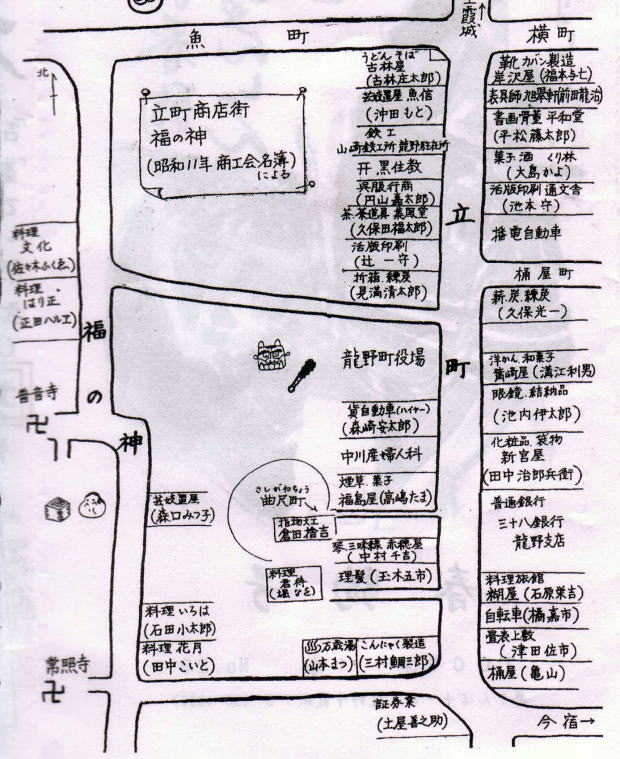 霞城
魚町
横町
北
立町商店街
福の神
(昭和11年 商工会名簿)
による
うどん そば
古林屋
(古林庄太郎)
芸妓置屋 魚信
(沖田もと)
鉄工
山崎鉄工所 龍野駐在所
黒住教
呉服行商
(円山嘉太郎)
茶・茶道具 薫風堂
(久保田福太郎)
活版印刷
(辻一守)
折箱・練炭
(見満清太郎)
靴 カバン製造
岸沢屋(福本与七)
表具師 旭翠軒(前田龍治)
書画骨董 平和堂
(平松藤太郎)
菓子 酒 くり林
(大島かよ)
活版印刷 通文舎
(池本守)
播電自動車
立町
桶屋町
薪・炭・練炭
(久保光一)
洋かん・和菓子
(溝江利男)
眼鏡・結納品
(池内伊太郎)
化粧品・袋物
新宮屋
(田中治郎兵衛)
普通銀行
三十八銀行
龍野支店
料理旅館
糊屋(石原栄吉)
自転車(橘嘉市)
畳表上敷
(津田佐市)
桶屋(亀山)
今宿→
料理
文化
(佐々木ふくゑ)
料理・
はり正
(正田ハルエ)
福の神
普音寺
卍
龍野町役場
貨自動車(ハイヤー)
(森崎安太郎)
中川産婦人科
煙草・菓子
福島屋(高嶋たま)
さしがねちょう
曲尺町
指物大工
倉田捨吉
琴三味線 赤穂屋
(中村千吉)
理髪(玉木五市)
料理
君村
(堀なを)
芸妓置屋
(森口みつ子)
料理いろは
(石田小太郎)
料理 花月
(田中こいと)
万歳湯
(山本まつ)
こんにゃく製造
(三村鯛三郎)
常照寺
卍
証券業
(土屋善之助)